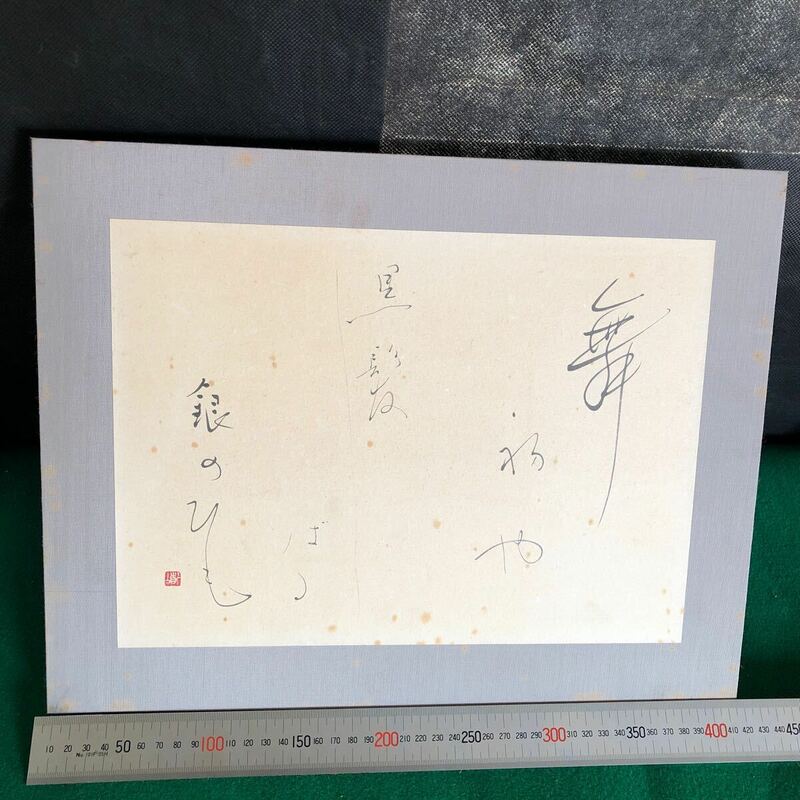 舞
初也
黒髪
し
ばる
銀のひも
10 20 30 40 50 60 70 80 90 100 110 120 130 140 150 160 170 180 190 200 210 220 230 240 250 260 270 280 290 300 310 320 330 340 350 360 370 380 390 400 410 420 430 440 450